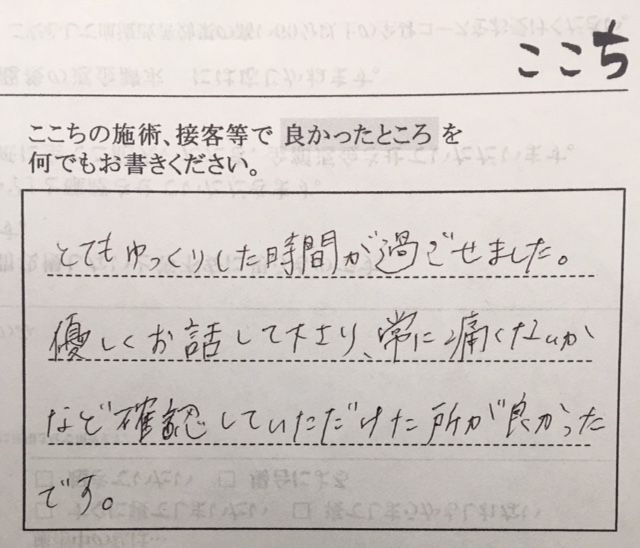 ここち
ここちの施術、接客等で 良かったところ を
何でもお書きください。
とてもゆっくりした時間が過ごせました。
優しくお話して下さり、常に痛くないか
など確認していただけた所が良かった
です。